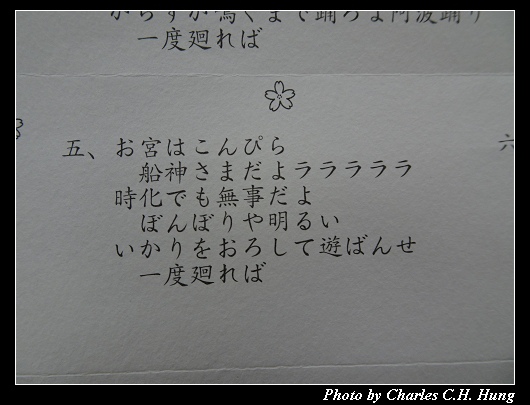 からすが鳴くまで踊ろよ阿波踊り
一度廻れば
五、お宮はこんぴら
船神さまだよララララララ
時化でも無事だよ
ぼんぼりや明るい
いかりをおろして遊ばんせ
一度廻れば
六
Photo by Charles C.H. Hung